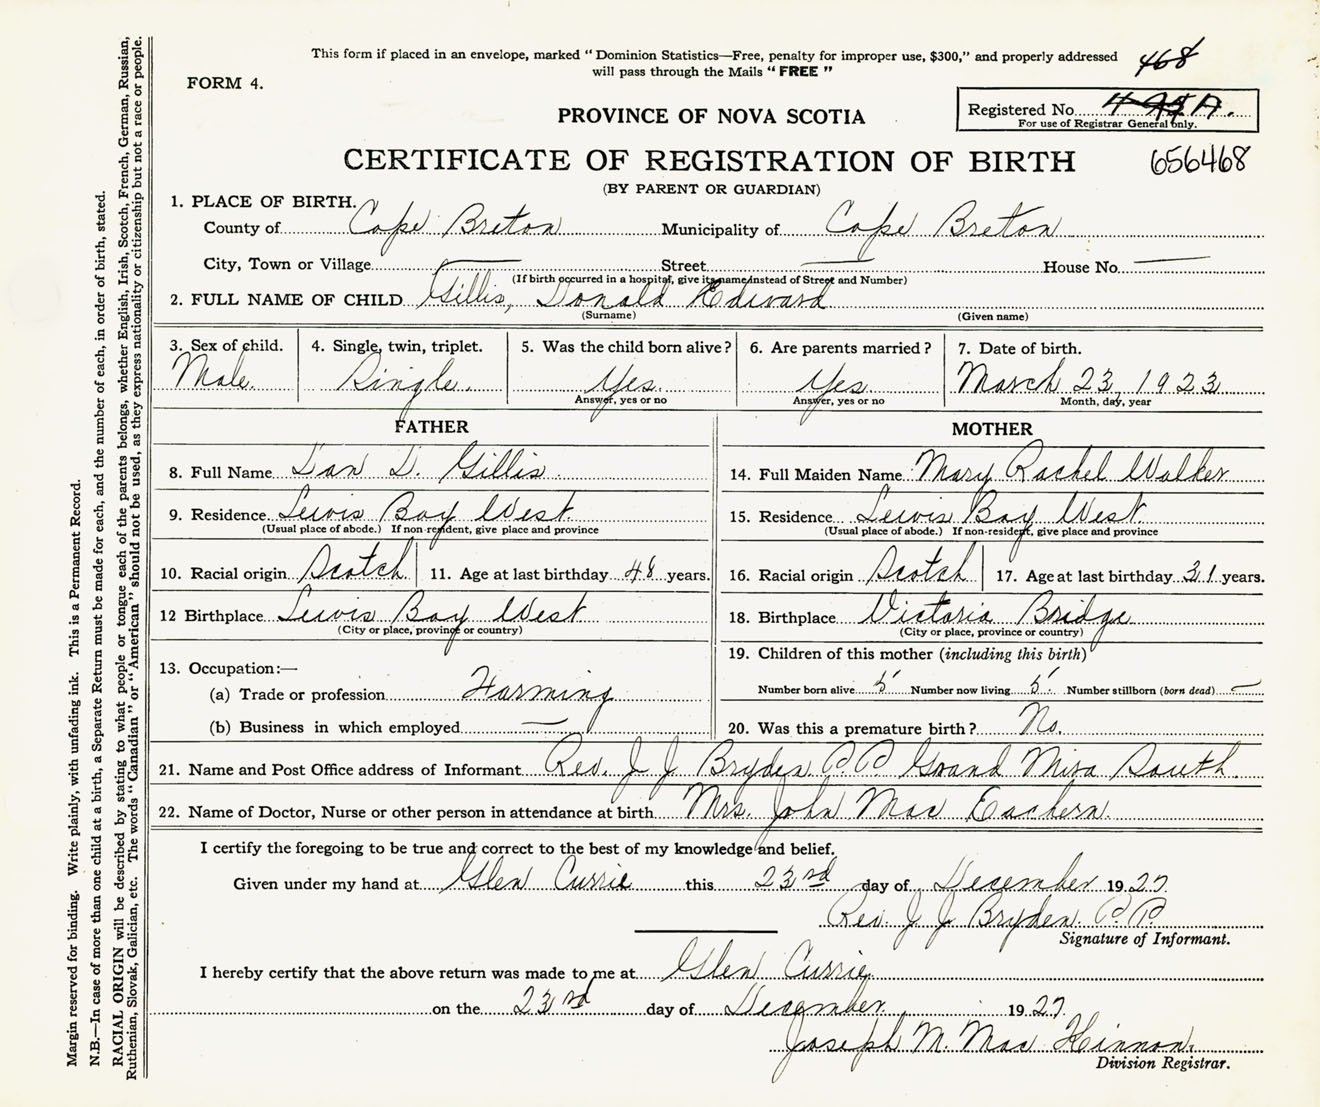 This form if placed in an envelope, marked “ Dominion Statistics—Free, penalty for improper use, $300,” and properly addressed
will pass through the Mails “ FREE ”
468
FORM 4.
PROVINCE OF NOVA SCOTIA
Registered No.
For use of Registrar General only.
CERTIFICATE OF REGISTRATION OF BIRTH
656468
(BY PARENT OR GUARDIAN)
1. PLACE OF BIRTH.
County of Cape Breton Municipality of Cape Breton
City, Town or Village — Street — House No. —
(If birth occurred in a hospital, give its name instead of Street and Number)
2. FULL NAME OF CHILD Gillis, Donald Edward
(Surname) (Given name)
3. Sex of child. 4. Single, twin, triplet. 5. Was the child born alive? 6. Are parents married? 7. Date of birth.
Male. Single. Yes. Yes. March 23, 1923
Answer, yes or no Answer, yes or no Month, day, year
FATHER MOTHER
8. Full Name Dan D. Gillis. 14. Full Maiden Name Mary Rachel Walker
9. Residence Lewis Bay West 15. Residence Lewis Bay West
(Usual place of abode.) If non-resident, give place and province (Usual place of abode.) If non-resident, give place and province
10. Racial origin Scotch 11. Age at last birthday 48 years. 16. Racial origin Scotch 17. Age at last birthday 31 years.
12 Birthplace Lewis Bay West 18. Birthplace Victoria Bridge
(City or place, province or country) (City or place, province or country)
13. Occupation:— 19. Children of this mother (including this birth)
(a) Trade or profession Farming Number born alive 5 Number now living 5 Number stillborn (born dead) —
(b) Business in which employed — 20. Was this a premature birth? No.
21. Name and Post Office address of Informant Rev. J J Bryden P.P. Grand Mira South.
22. Name of Doctor, Nurse or other person in attendance at birth Mrs. John Mac Eachern.
I certify the foregoing to be true and correct to the best of my knowledge and belief.
Given under my hand at Glen Currie this 23rd day of December 1927
Rev. J J Bryden. P.P.
Signature of Informant.
I hereby certify that the above return was made to me at Glen Currie
on the 23rd day of December 1927.
Joseph M. Mac Kinnon.
Division Registrar.
Margin reserved for binding. Write plainly, with unfading ink. This is a Permanent Record.
N.B.—In case of more than one child at a birth, a Separate Return must be made for each, and the number of each, in order of birth, stated.
RACIAL ORIGIN will be described by stating to what people or tongue each of the parents belongs, whether English, Irish, Scotch, French, German, Russian,
Ruthenian, Slovak, Galician, etc. The words “ Canadian ” or “ American ” should not be used, as they express nationality or citizenship but not a race or people.